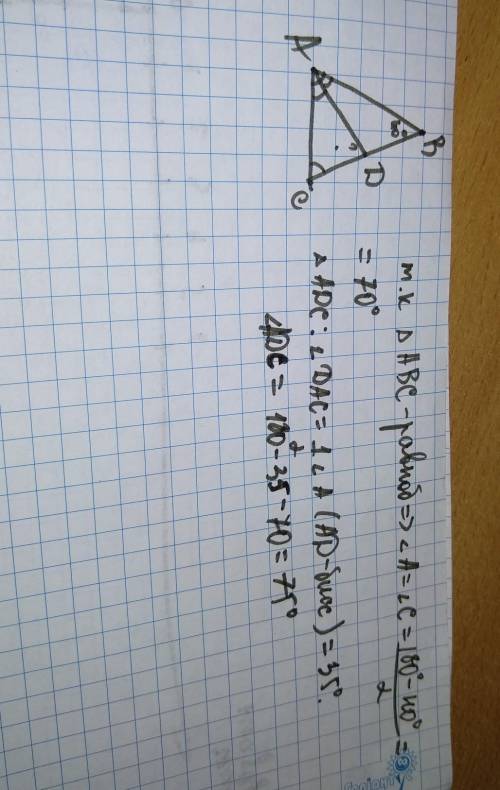 A
B
D
C
40°
?
т.к △ABC - равноб => ∠A = ∠C = (180° - 40°)/2 =
= 70°
△ADC: ∠DAC = 1/2 ∠A (AD - бисс) = 35°.
∠ADC = 180 - 35 - 70 = 75°